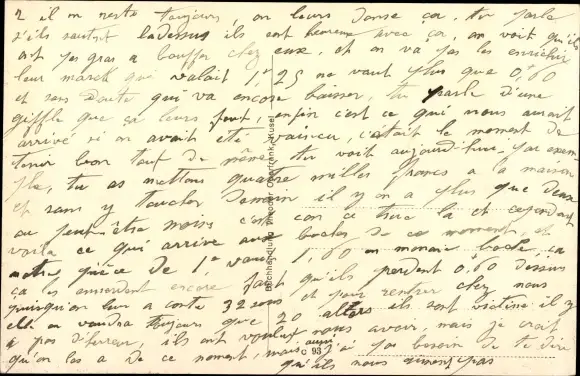 2 il en reste toujours, on leurs donne ça, tu parle
s'ils sautent la dessus ils sont heureux avec ça, on voit qu'ils
ont pas gras a bouffer chez eux, et on va pas les enrichir
leur marck qui valait 1,25 ne vaut plus que 0,60
et sans doute qui va encore baisser, tu parle d'une
giffle que ça leurs fout, enfin c'est ce qui nous aurait
arrivé si on avait été vaincu, c'était le moment de
tenir bon tout de même, tu voit aujourd'hui par exem
ple, tu as mettons quatre milles francs a la maison
et sans y toucher demain il y en a plus que deux
ou peut-être moins c'est con ce truc la et cependant
voila ce qui arrive aux boches de ce moment, et
notre pièce de 1, vaut 1,60 en monnaie boche, ça
ça les emerdent encore faut qu'ils perdent 0,60 dessus
puisqu'on leur a conté 32 sous et pour rentrer chez nous
elle en vaudra toujours que 20 alors ils sont victime il y
a pas d'erreur, ils ont voulut nous avoir mais je crois
qu'on les a de ce moment, mais aussi j'ai pas besoin de te dire
qu'ils nous aiment pas
Buchhandlung Theodor Oberfrank, Kusel
C 93